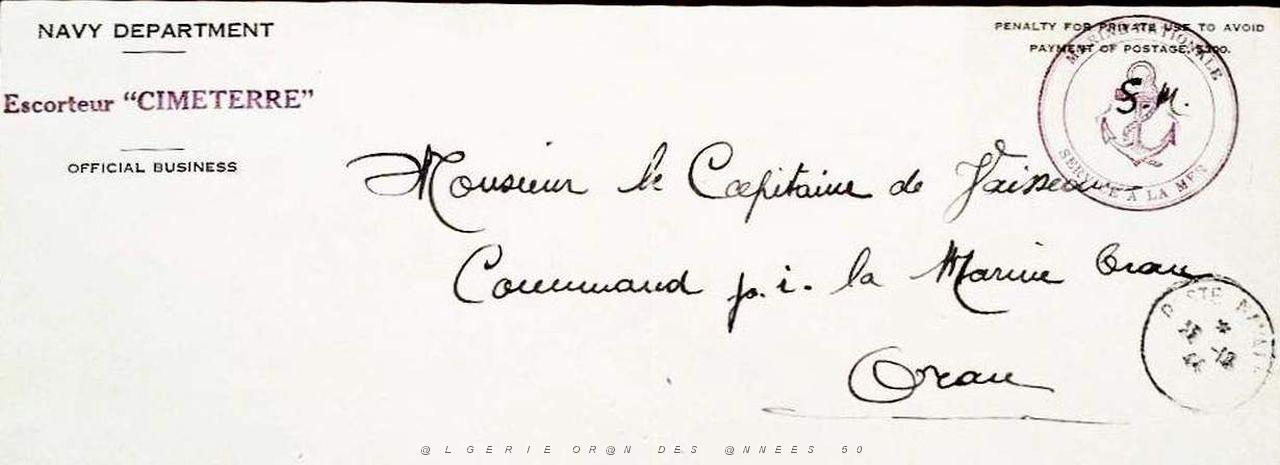 NAVY DEPARTMENT
Escorteur “CIMETERRE”
OFFICIAL BUSINESS
PENALTY FOR PRIVATE USE TO AVOID
PAYMENT OF POSTAGE, $300.
MARINE NATIONALE
S.M.
SERVICE A LA MER
Monsieur le Capitaine de Vaisseau
Command p. i. la Marine Oran
Oran
POSTE NAVALE
@LGERIE OR@N DES @NNEES 50